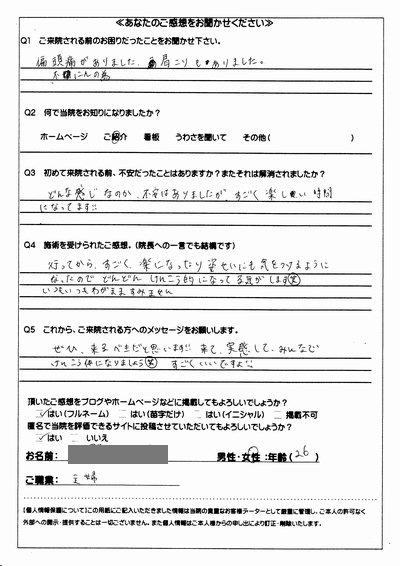 ≪あなたのご感想をお聞かせください≫
Q1 ご来院される前のお困りだったことをお聞かせ下さい。
偏頭痛がありました、肩こりもありました。
不妊にんの為
Q2 何で当院をお知りになりましたか?
ホームページ ご紹介 看板 うわさを聞いて その他( )
Q3 初めて来院される前、不安だったことはありますか?またそれは解消されましたか?
どんな感じなのか、不安はありましたがすごく楽しい時間
になってます!!
Q4 施術を受けられたご感想。(院長への一言でも結構です)
行ってから、すごく、楽になったり姿せいにも気をつけるように
なったのでどんどんけんこう的になってる気がします(笑)
いつもいつもわがまますみません
Q5 これから、ご来院される方へのメッセージをお願いします。
ぜひ、来るべきだと思います!!来て、実感して、みんなで
けんこう体になりましょう(笑) すごくいいですよ!!
頂いたご感想をブログやホームページなどに掲載してもよろしいでしょうか?
はい(フルネーム) はい(苗字だけ) はい(イニシャル) 掲載不可
匿名で当院を評価できるサイトに投稿させていただいてもよろしいでしょうか?
はい いいえ
お名前: 男性・女性:年齢(26)
ご職業: 主婦
【個人情報保護について】この用紙にご記入いただきました情報は当院の貴重なお客様データーとして厳重に管理し、ご本人の許可なく
外部への開示・提供することは一切ございません。また個人情報はご本人様からの申し出により訂正・削除いたします。